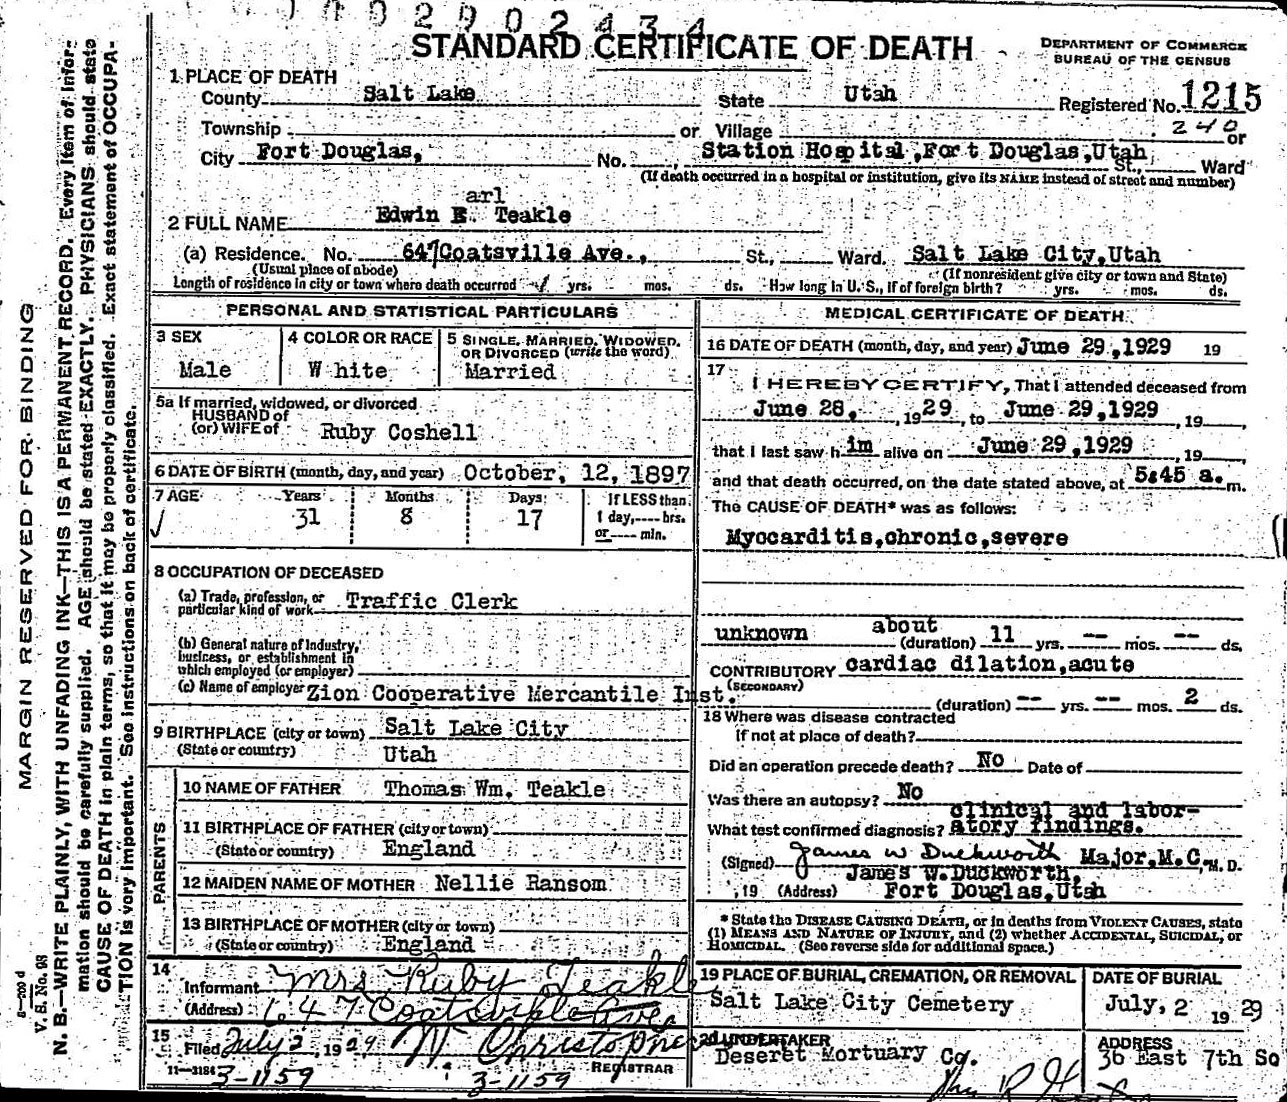 2 9 0 2 4 3 4
STANDARD CERTIFICATE OF DEATH
DEPARTMENT OF COMMERCE
BUREAU OF THE CENSUS
1 PLACE OF DEATH
County Salt Lake State Utah Registered No. 1215
Township or Village 240 or
City Fort Douglas, No. , Station Hospital, Fort Douglas, Utah St., Ward
(If death occurred in a hospital or institution, give its NAME instead of street and number)
arl
2 FULL NAME Edwin E. Teakle
(a) Residence. No. 647 Coatsville Ave., St., Ward. Salt Lake City, Utah
(Usual place of abode) (If nonresident give city or town and State)
Length of residence in city or town where death occurred yrs. mos. ds. How long in U. S., if of foreign birth? yrs. mos. ds.
PERSONAL AND STATISTICAL PARTICULARS
3 SEX 4 COLOR OR RACE 5 SINGLE, MARRIED, WIDOWED,
OR DIVORCED (write the word)
Male White Married
5a If married, widowed, or divorced
HUSBAND of
(or) WIFE of Ruby Coshell
6 DATE OF BIRTH (month, day, and year) October, 12, 1897
7 AGE Years Months Days If LESS than
31 8 17 1 day, hrs.
or min.
8 OCCUPATION OF DECEASED
(a) Trade, profession, or
particular kind of work Traffic Clerk
(b) General nature of industry,
business, or establishment in
which employed (or employer)
(c) Name of employer Zion Cooperative Mercantile Inst.
9 BIRTHPLACE (city or town) Salt Lake City
(State or country) Utah
PARENTS
10 NAME OF FATHER Thomas Wm. Teakle
11 BIRTHPLACE OF FATHER (city or town)
(State or country) England
12 MAIDEN NAME OF MOTHER Nellie Ransom
13 BIRTHPLACE OF MOTHER (city or town)
(State or country) England
14
Informant Mrs Ruby Teakle
(Address) 647 Coatsville Ave
15 Filed July 2, 1929 W. Christopherson
REGISTRAR
11—3184 3-1159 3-1159
MEDICAL CERTIFICATE OF DEATH
16 DATE OF DEATH (month, day, and year) June 29, 1929 19
17
I HEREBY CERTIFY, That I attended deceased from
June 28, 1929, to June 29, 1929, 19
that I last saw him alive on June 29, 1929, 19
and that death occurred, on the date stated above, at 5:45 a. m.
The CAUSE OF DEATH* was as follows:
Myocarditis, chronic, severe
unknown about (duration) 11 yrs. -- mos. -- ds.
CONTRIBUTORY cardiac dilation, acute
(SECONDARY)
(duration) -- yrs. -- mos. 2 ds.
18 Where was disease contracted
if not at place of death?
Did an operation precede death? No Date of
Was there an autopsy? No
What test confirmed diagnosis? clinical and labor-
atory findings.
(Signed) James W Duckworth Major, M.C., M. D.
James W. Duckworth,
, 19 (Address) Fort Douglas, Utah
* State the DISEASE CAUSING DEATH, or in deaths from VIOLENT CAUSES, state
(1) MEANS AND NATURE OF INJURY, and (2) whether ACCIDENTAL, SUICIDAL, or
HOMICIDAL. (See reverse side for additional space.)
19 PLACE OF BURIAL, CREMATION, OR REMOVAL DATE OF BURIAL
Salt Lake City Cemetery July, 2 1929
20 UNDERTAKER ADDRESS
Deseret Mortuary Co. 36 East 7th So
MARGIN RESERVED FOR BINDING
N. B.—WRITE PLAINLY, WITH UNFADING INK—THIS IS A PERMANENT RECORD. Every item of infor-
mation should be carefully supplied. AGE should be stated EXACTLY. PHYSICIANS should state
CAUSE OF DEATH in plain terms, so that it may be properly classified. Exact statement of OCCUPA-
TION is very important. See instructions on back of certificate.
V. S. No. 98